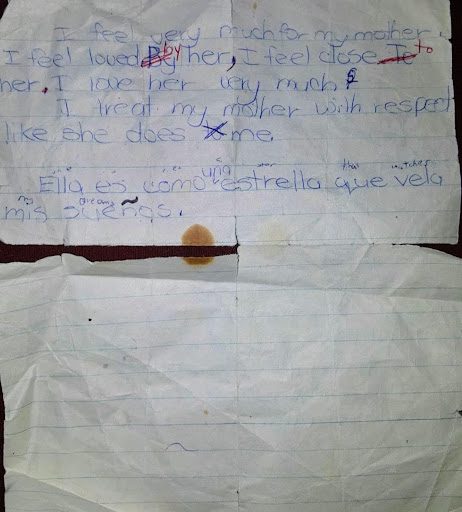 I feel very much for my mother.
I feel loved by her, I feel close to
her, I love her very much
I treat my mother with respect
like she does me.
una star that watches
Ella es como estrella que vela
my dreams
mis sueños.